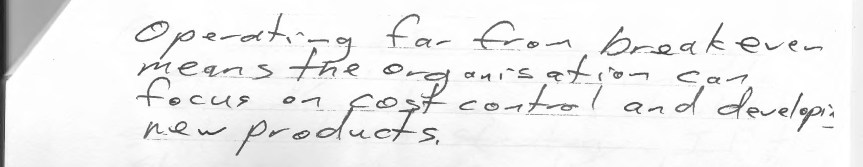 Operating far from breakeven
means the organisation can
focus on cost control and developin
new products.